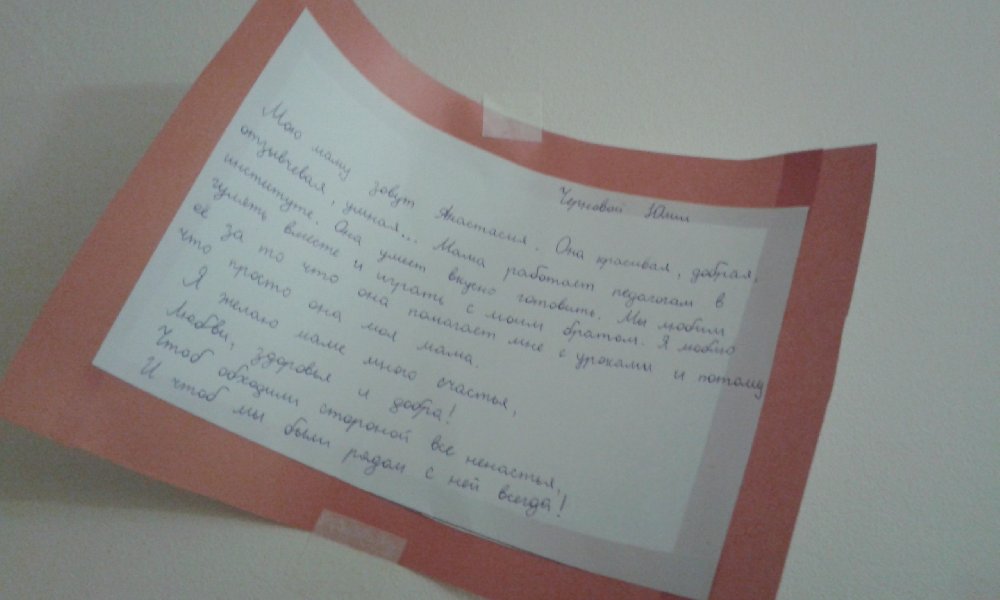 Черновой Юлии
Мою маму зовут Анастасия. Она красивая, добрая,
отзывчевая, умная... Мама работает педагогам в
институте. Она умеет вкусно готовить. Мы любим
гулять вместе и играть с моим братом. Я люблю
её за то что она памагает мне с уроками и потому
что просто она моя мама.
Я желаю маме много счастья,
Любви, здоровья и добра!
Чтоб обходили стороной все ненастья,
И чтоб мы были рядом с ней всегда!